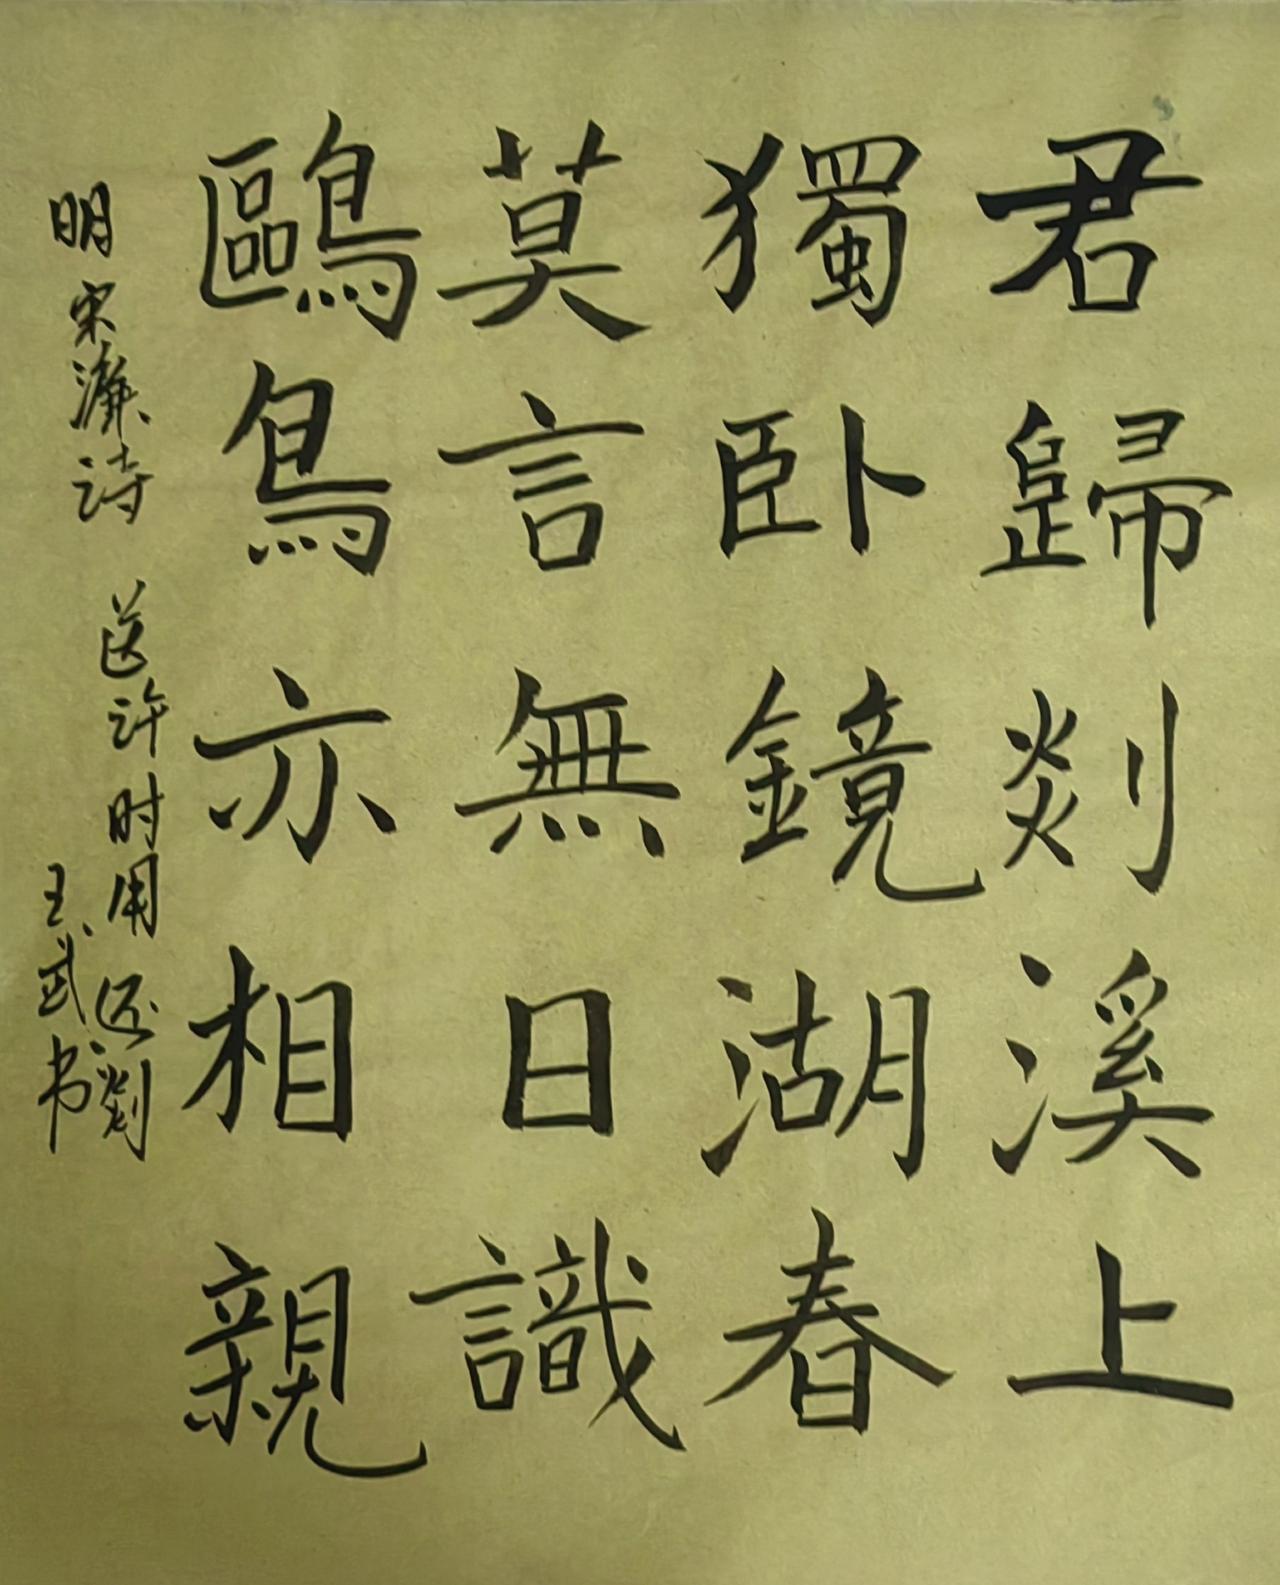 君歸剡溪上
獨卧鏡湖春
莫言無日識
鷗鳥亦相親
明宋濂诗 送许时用还剡
王武书